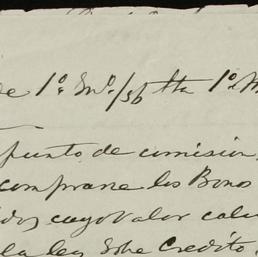 de 1º Enº/56 Hta 1º M
punto de comision
comprarse los Bonos
idos cuyo Valor calcu
la ley Sobe Credito.